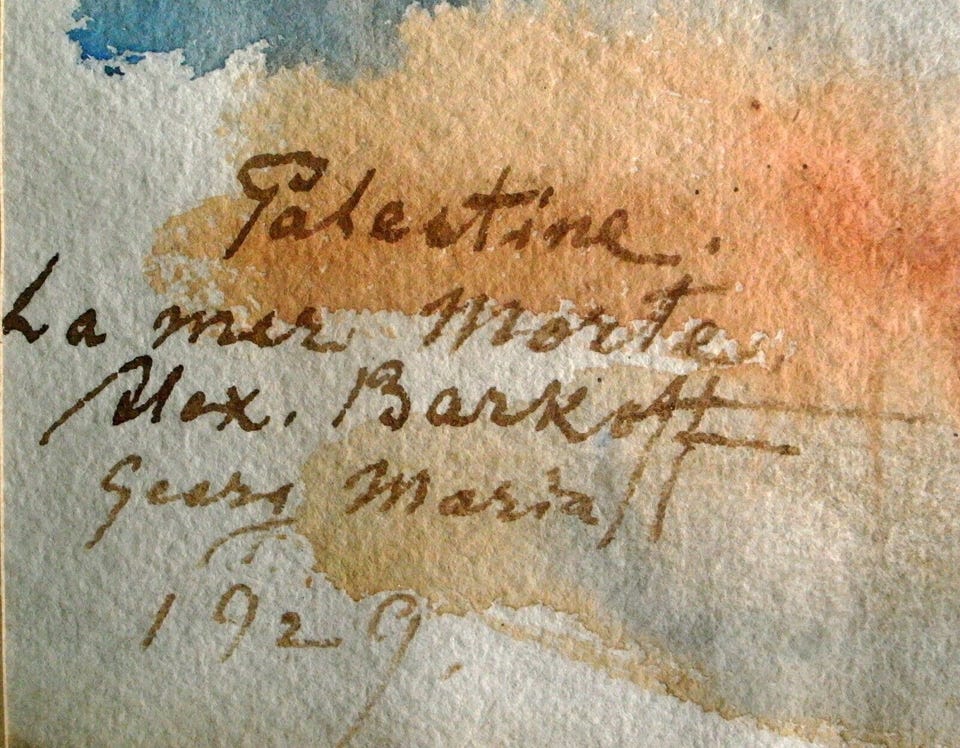 Palestine.
La mer Morte.
Alex. Barkoff
Georg Maria
1929.